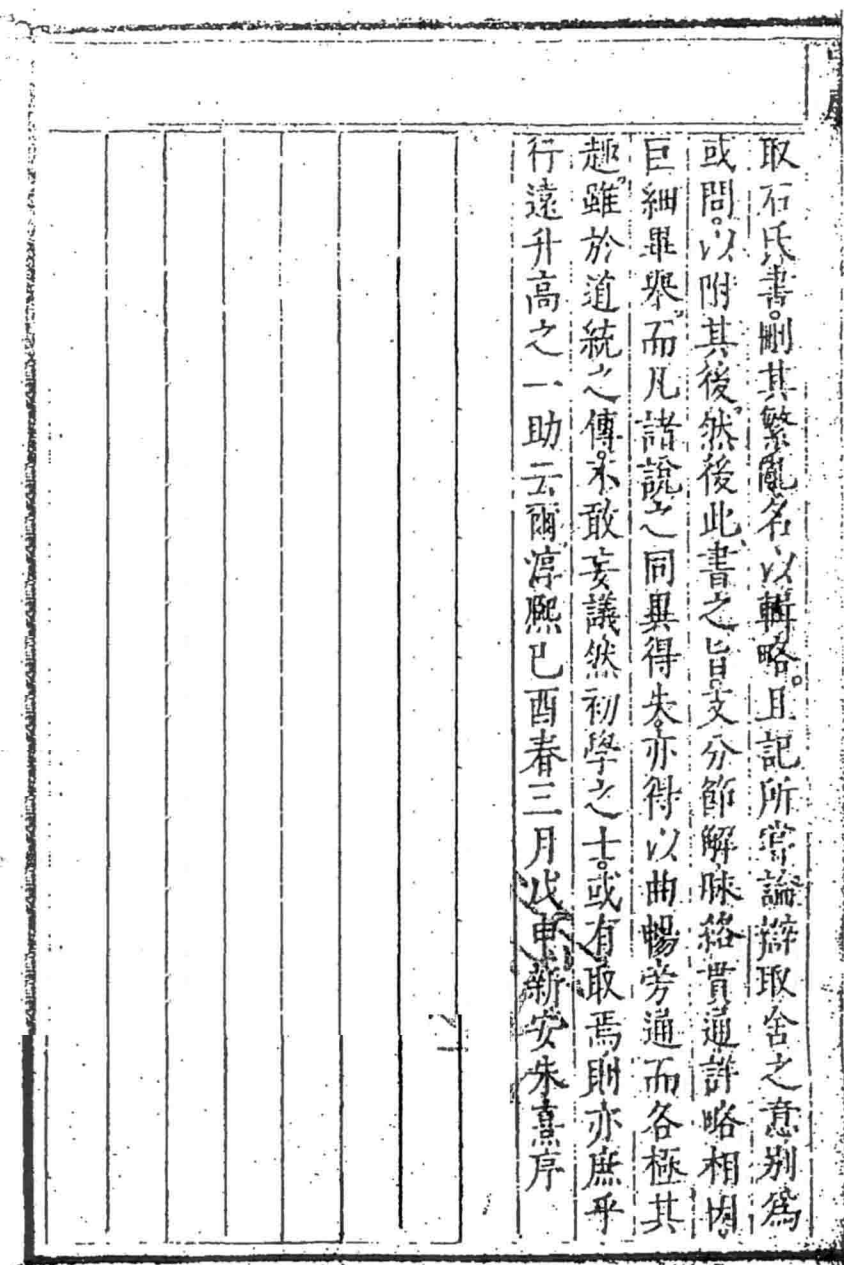 取石氏書。刪其繁亂名以輯略。且記所嘗論辯取舍之意别爲
或問。以附其後。然後此書之旨。支分節解脉絡貫通詳略相因。
巨細畢舉。而凡諸說之同異得失。亦得以曲暢旁通而各極其
趣。雖於道統之傳。不敢妄議然初學之士。或有取焉則亦庶乎
行遠升高之一助云爾淳熙己酉春三月戊申新安朱熹序